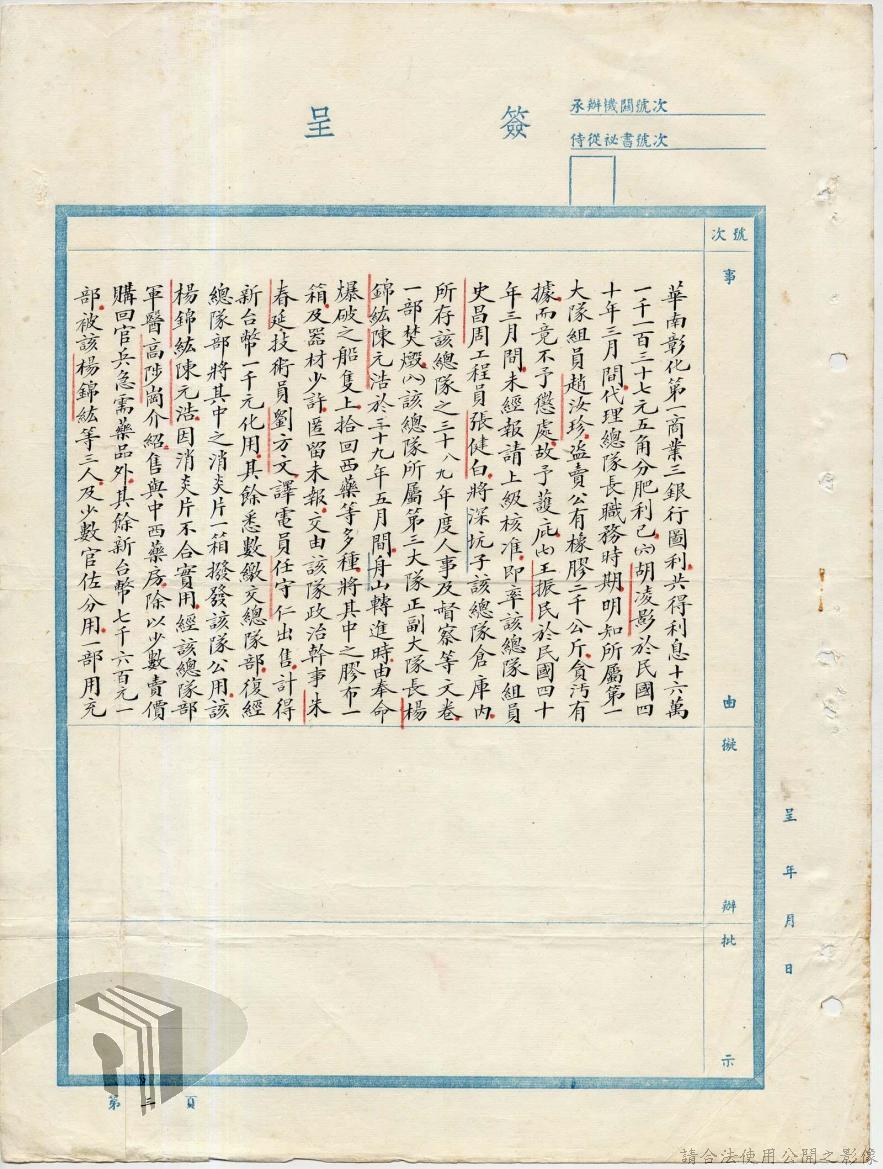 簽呈
承辦機關號次
侍從祕書號次
號次
事由
擬辦
批示
呈 年 月 日
華南彰化第一商業三銀行圖利共得利息十六萬
一千一百三十七元五角分肥利己㈥胡凌影於民國四
十年三月間代理總隊長職務時期明知所屬第一
大隊組員趙汝珍盜賣公有橡膠二千公斤貪污有
據而竟不予懲處故予護庇㈦王振民於民國四十
年三月間未經報請上級核准即率該總隊組員
史昌周工程員張健白將深坑子該總隊倉庫內
所存該總隊之三十八九年度人事及督察等文卷
一部焚燬㈧該總隊所屬第三大隊正副大隊長楊
錦紘陳元浩於三十九年五月間舟山轉進時由奉命
爆破之船隻上拾回西藥等多種將其中之膠布一
箱及器材少許匿留未報交由該隊政治幹事朱
春延技術員劉方文譯電員任守仁出售計得
新台幣一千元化用其餘悉數繳交總隊部復經
總隊部將其中之消炎片一箱撥發該隊公用該
楊錦紘陳元浩因消炎片不合實用經該總隊部
軍醫高陟崗介紹售與中西藥房除以少數賣價
購回官兵急需藥品外其餘新台幣七千六百元一
部被該楊錦紘等三人及少數官佐分用一部用充
第三頁
請合法使用公開之影像